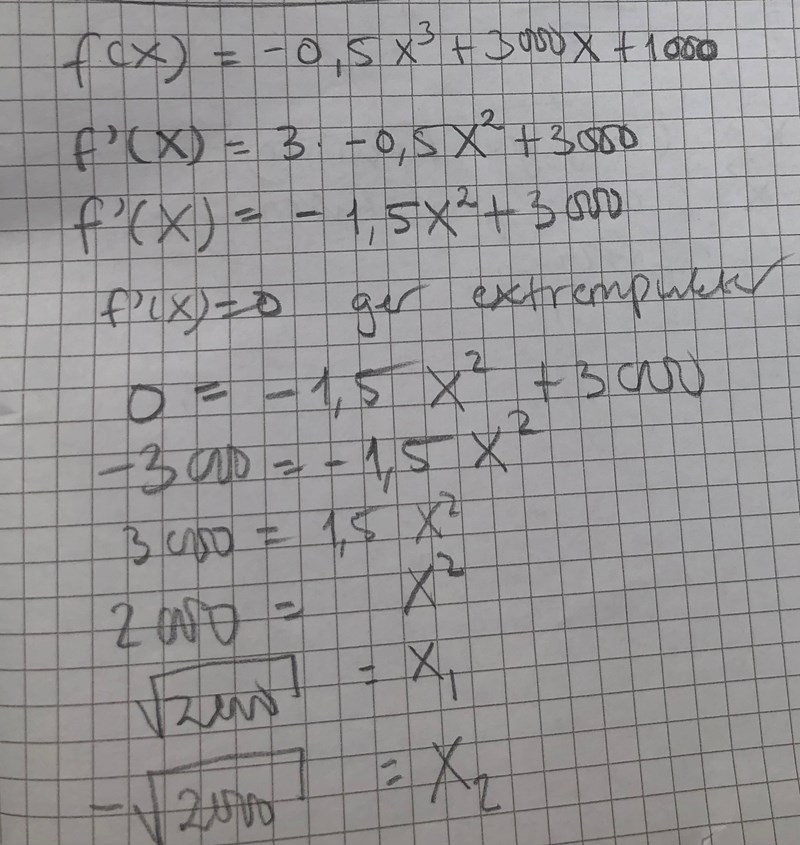 f(x) = -0,5x³ + 3000x + 1000
f'(x) = 3 · -0,5x² + 3000
f'(x) = -1,5x² + 3000
f'(x)=0 ger extrempunkter
0 = -1,5x² + 3000
-3000 = -1,5x²
3000 = 1,5x²
2000 = x²
√2000 = x₁
-√2000 = x₂